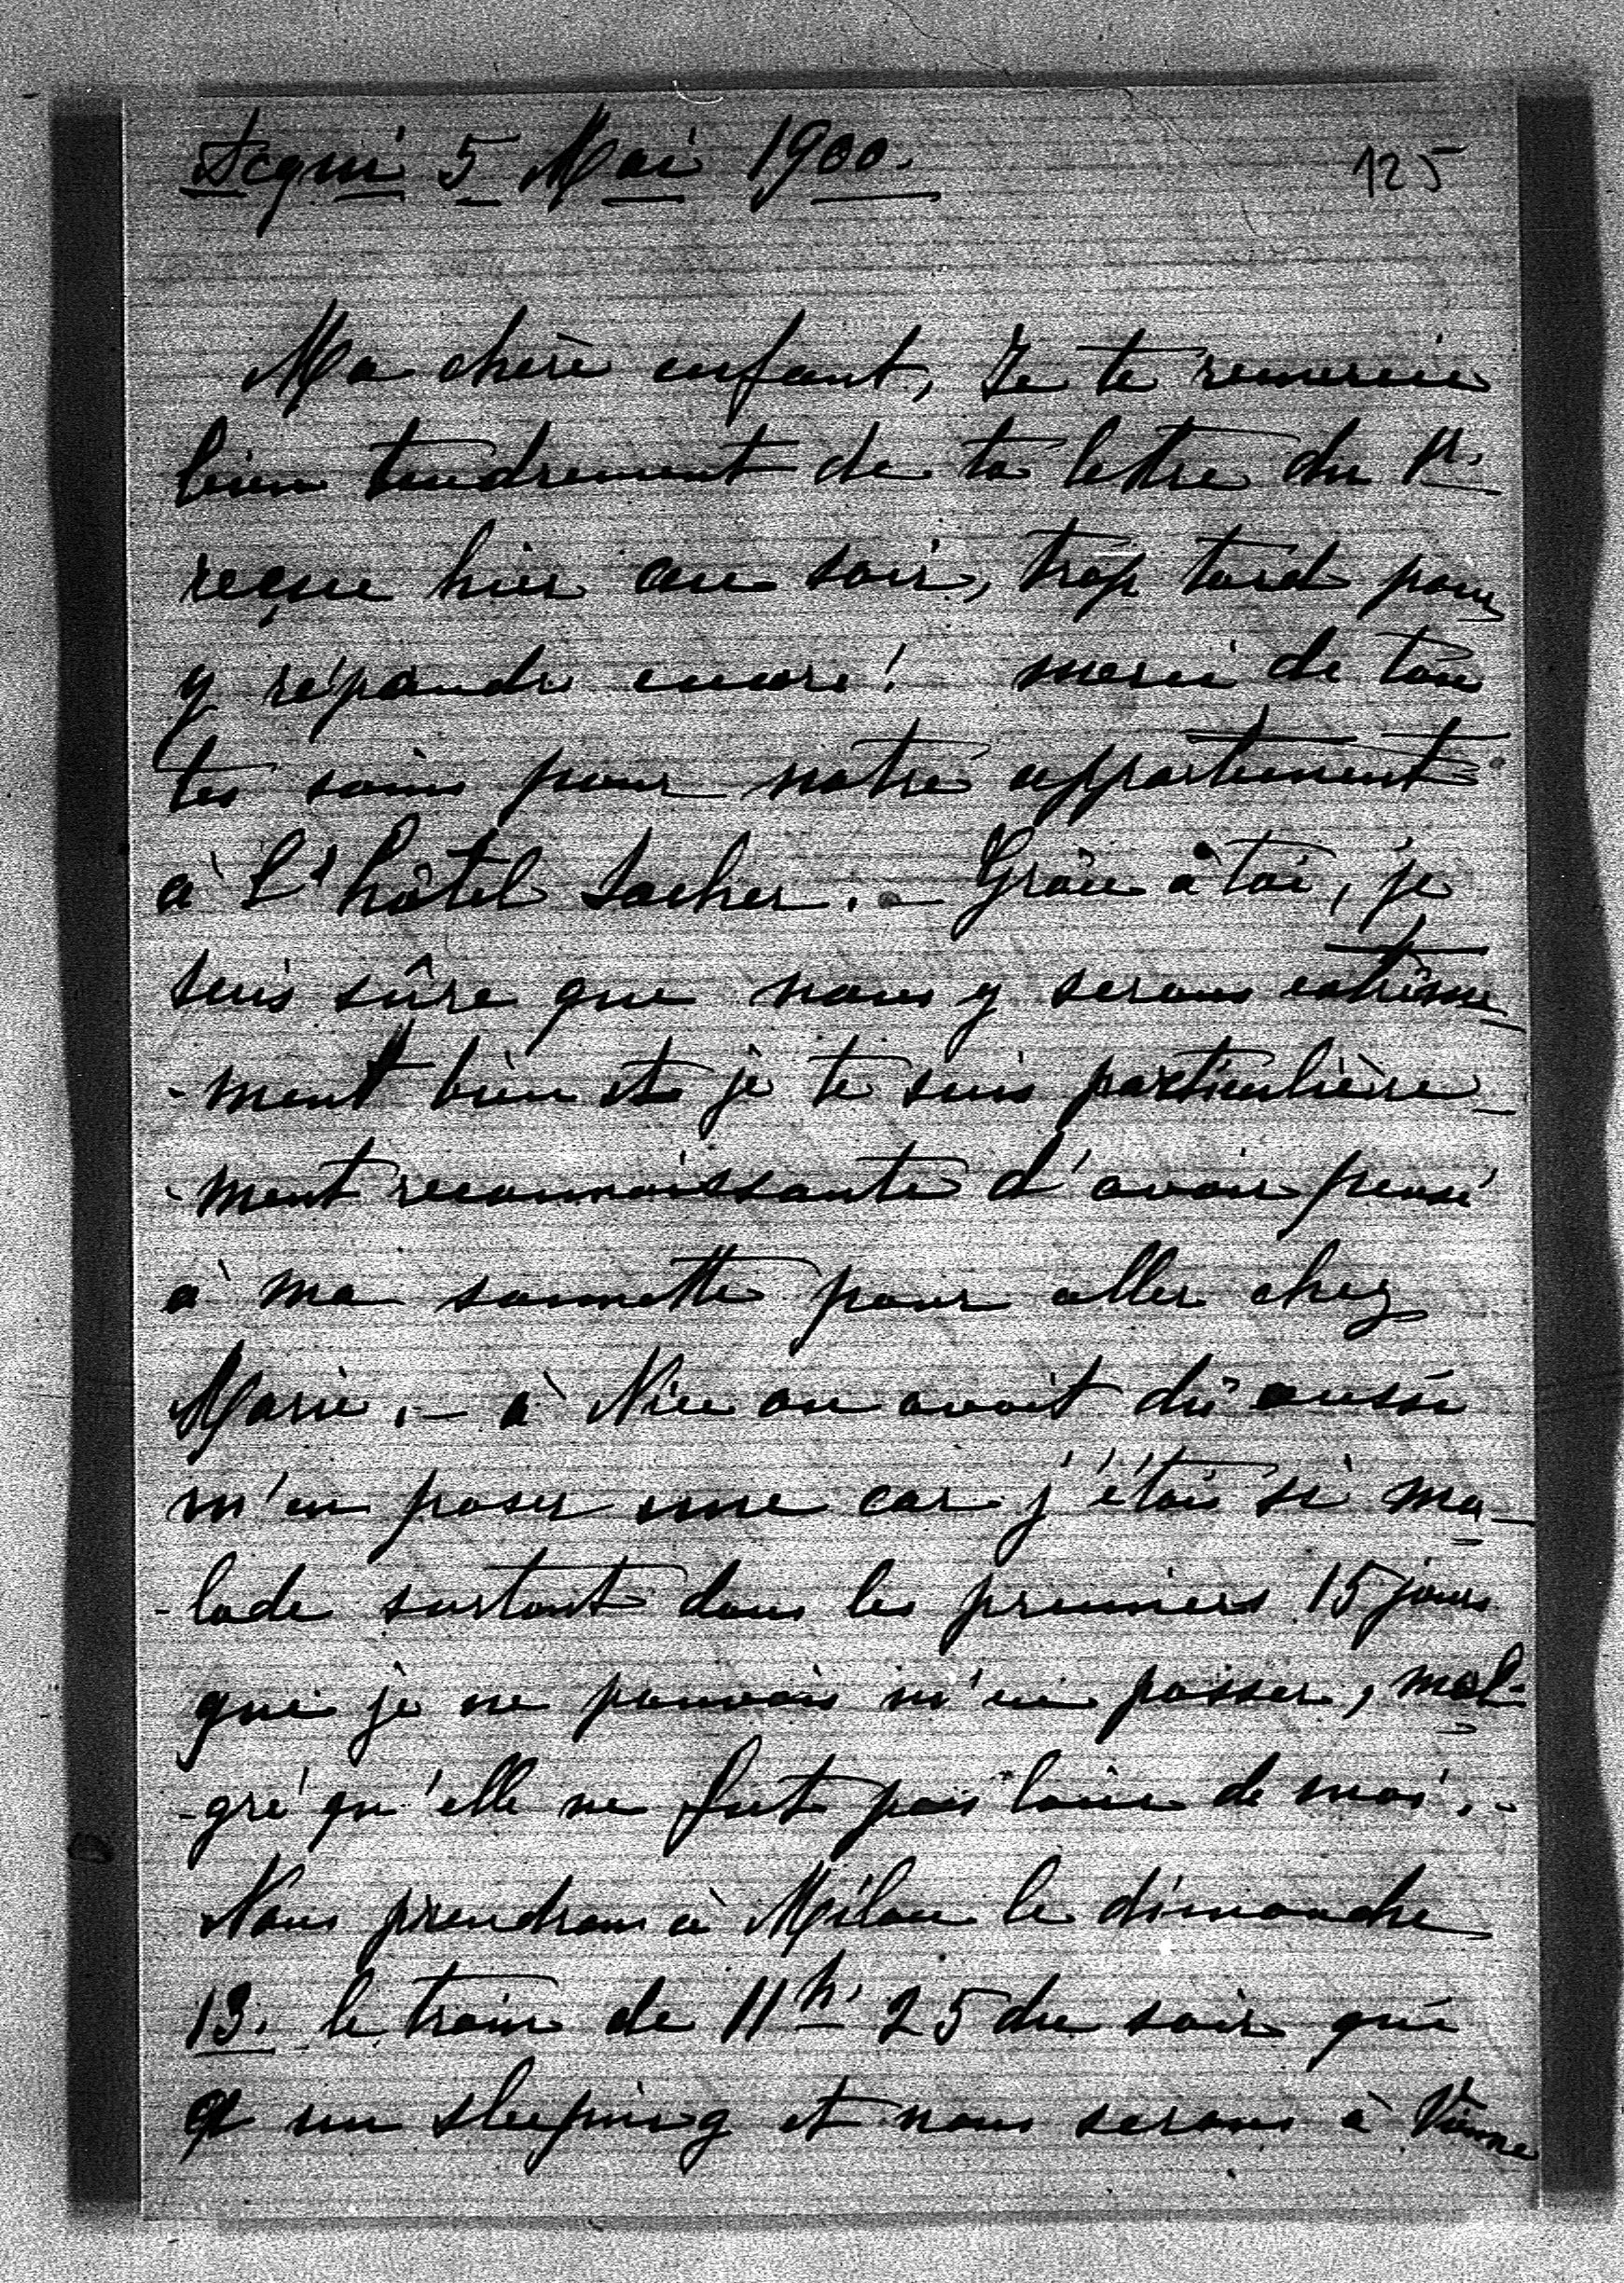 Acqui 5 Mai 1900.
125
Ma chère enfant, Je te remercie
bien tendrement de ta lettre du 1r.
reçue hier au soir, trop tard pour
y répondre encore! merci de tous
tes soins pour notre appartement
à L'hôtel Sacher. - Grâce à toi, je
suis sûre que nous y serons extrême-
-ment bien et je te suis particulière-
-ment reconnaissante d'avoir pensé
à ma sonnette pour aller chez
Marie. - à Nice on avait dû aussi
m'en poser une car j'étais si ma-
-lade surtout dans les premiers 15 jours
que je ne pouvais m'en passer, mal-
-gré qu'elle ne fut pas loin de moi. -
Nous prendrons à Milan le dimanche
13. le train de 11h. 25 du soir qui
a un sleeping et nous serons à Vienne